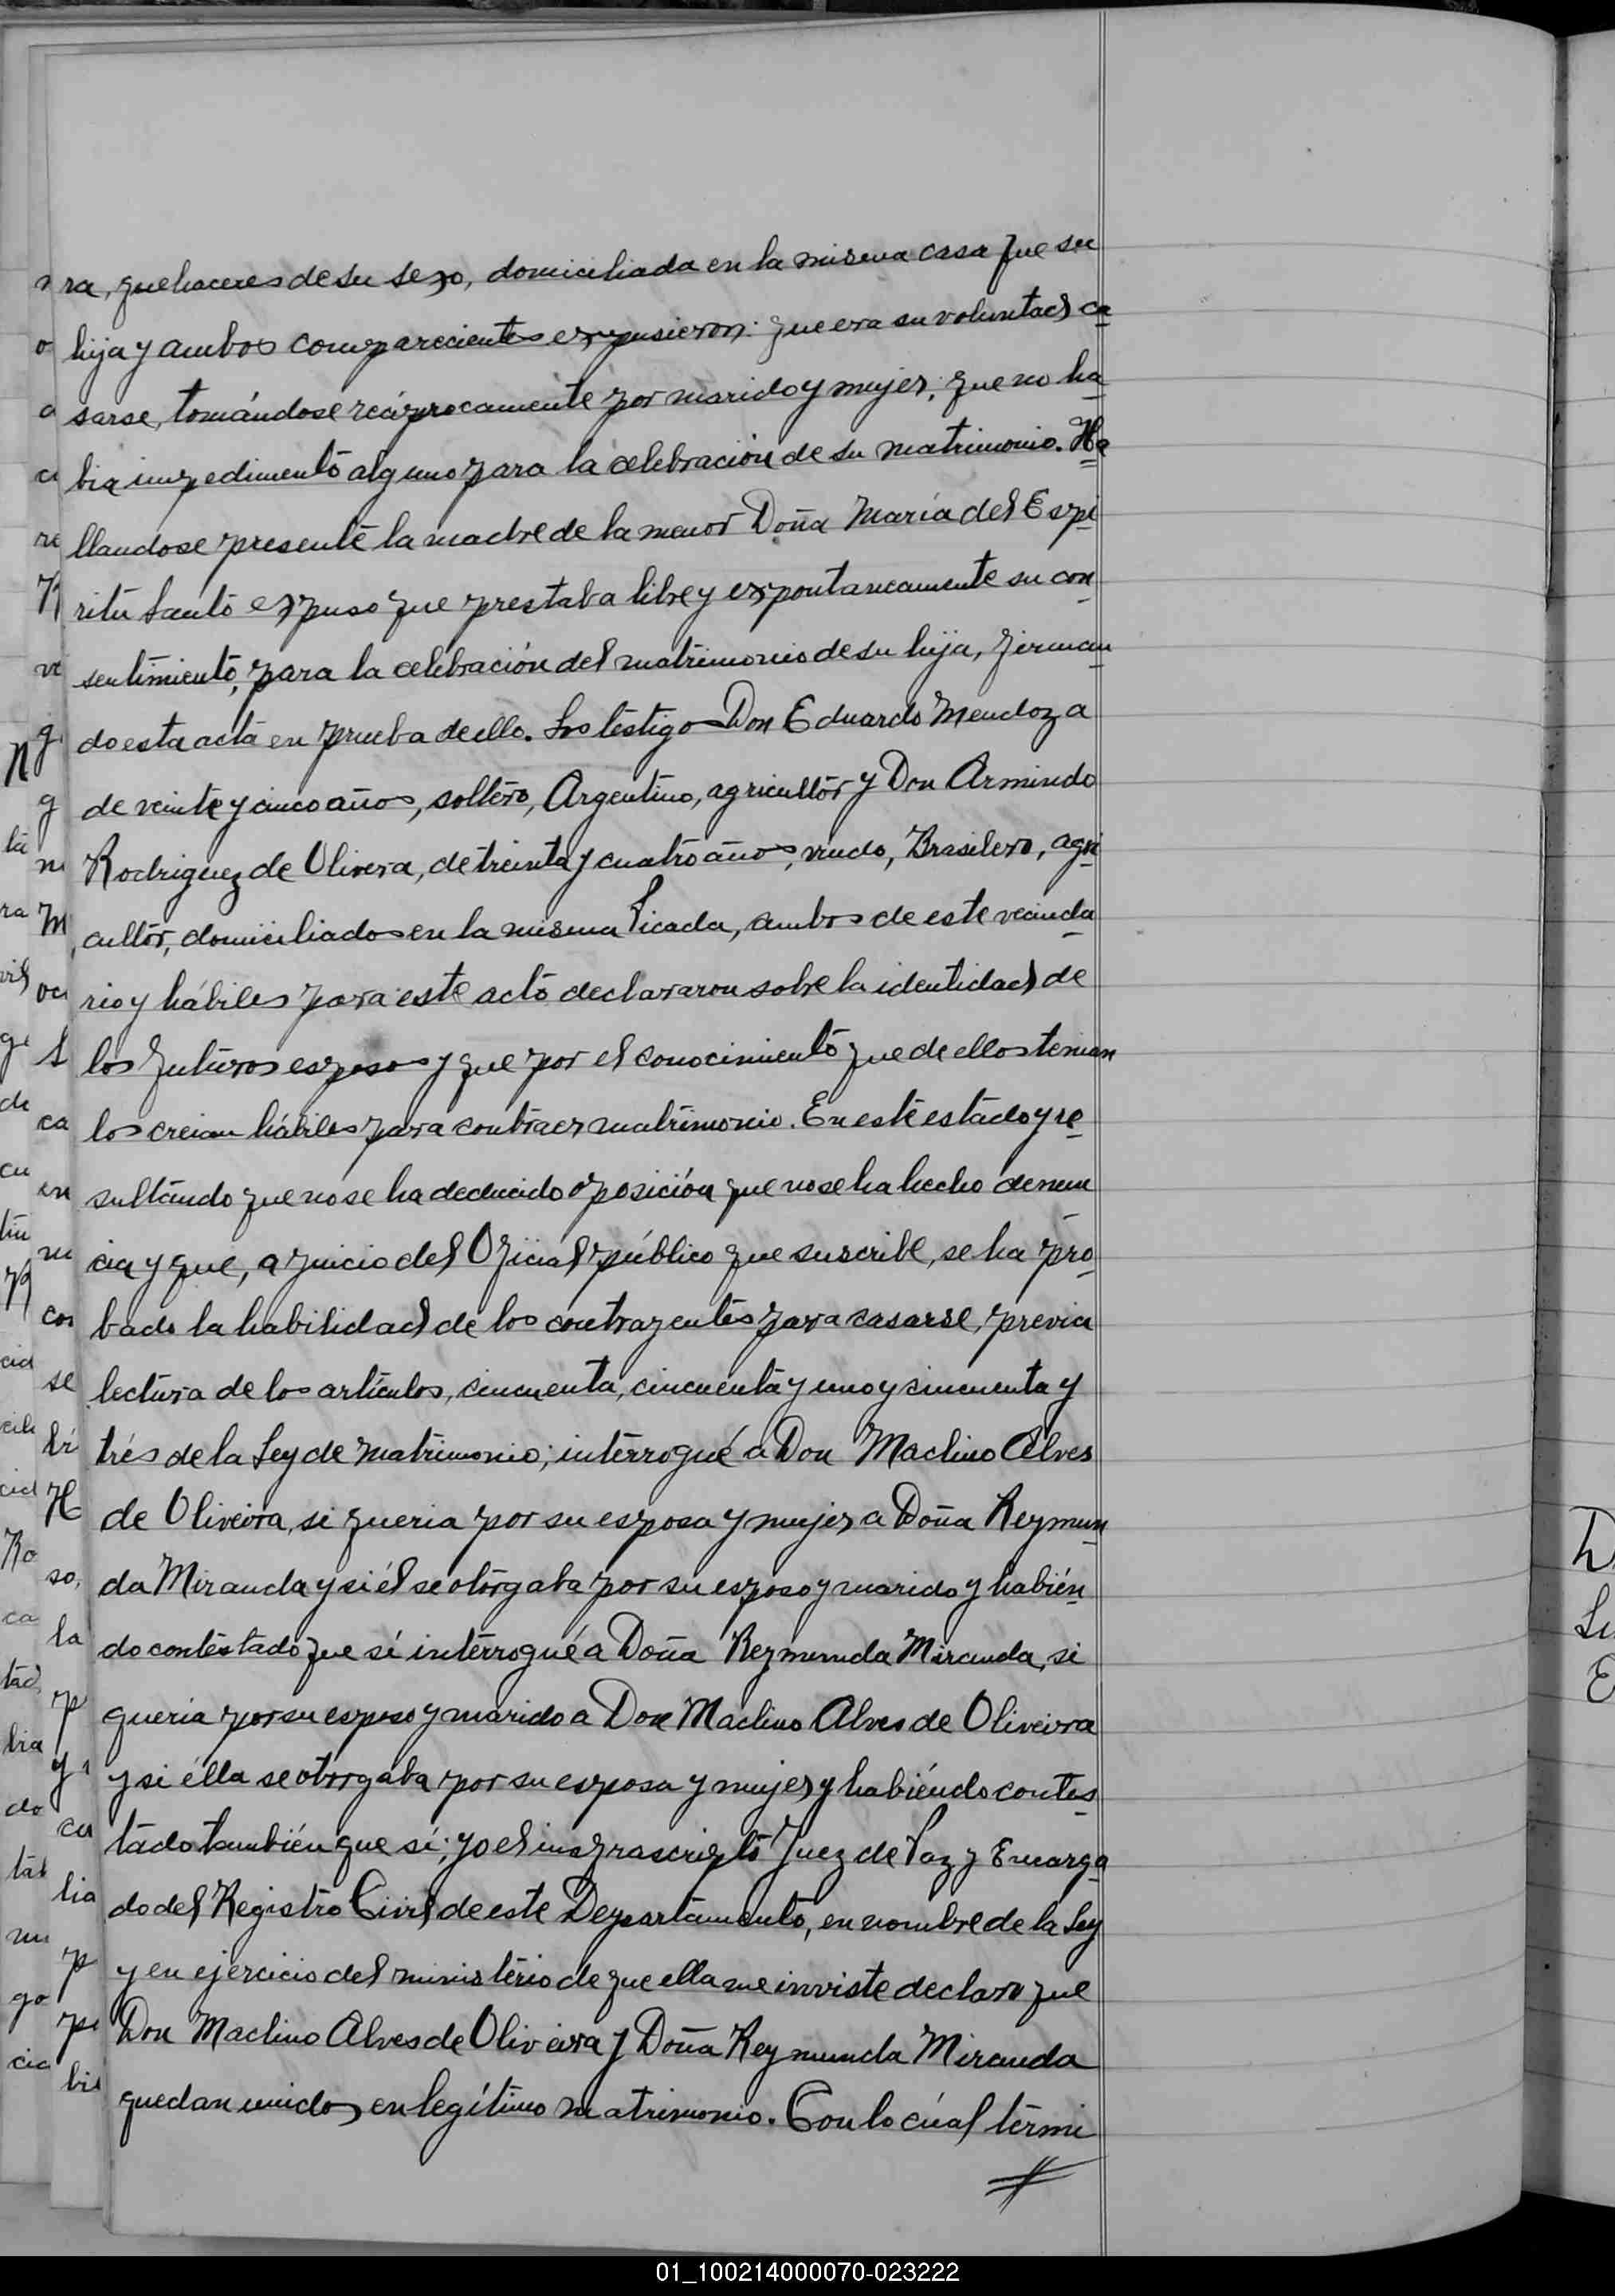 ra, quehaceres de su sexo, domiciliada en la misma casa que su
hija y ambos comparecientes expusieron: que era su voluntad ca
sarse, tomándose recíprocamente por marido y mujer; que no ha
bia impedimento alguno para la celebración de su matrimonio. Ha
llandose presente la madre de la menor Doña María del Espi
ritú Santo expuso que prestaba libre y expontaneamente su con
sentimiento, para la celebración del matrimonio de su hija, firman
do esta acta en prueba de ello. Los testigos Don Eduardo Mendoza
de veinte y cinco años, soltero, Argentino, agricultor y Don Armindo
Rodriguez de Olivera, de treinta y cuatro años, viudo, Brasilero, agri
cultor, domiciliados en la misma Picada, ambos de este vecinda
rio y hábiles para este acto declararon sobre la identidad de
los futuros esposos y que por el conocimiento que de ellos tenian
los creian hábiles para contraer matrimonio. En este estado y re
sultando que no se ha deducido oposición que no se ha hecho denun
cia y que, a juicio del Oficial público que suscribe, se ha pro
bado la habilidad de los contrayentes para casarse, previa
lectura de los artículos, cincuenta, cincuenta y uno y cincuenta y
trés de la Ley de Matrimonio; interrogué a Don Maclino Alves
de Oliveira, si queria por su esposa y mujer a Doña Reymun
da Miranda y si él se otorgaba por su esposo y marido y habién
do contestado que sí interrogué a Doña Reymunda Miranda, si
queria por su esposo y marido a Don Maclino Alves de Oliveira
y si élla se otorgaba por su esposa y mujer y habiéndo contes
tado también que sí; yo el infrascripto Juez de Paz y Encarga
do del Registro Civil de este Departamento, en nombre de la Ley
y en ejercicio del ministerio de que ella me inviste declaro que
Don Maclino Alves de Oliveira y Doña Reymunda Miranda
quedan unidos en legítimo matrimonio. Con lo cúal térmi
01_100214000070-023222